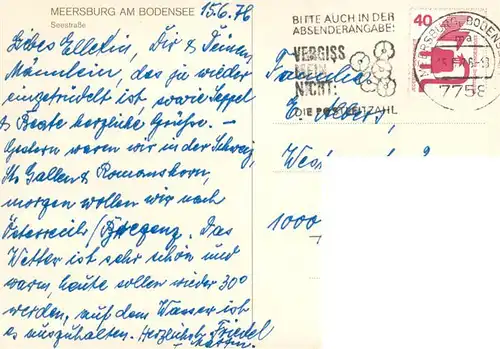 MEERSBURG AM BODENSEE
Seestraße
15.6.76
Liebes Ellelein, Dir & Deinem
Männlein, das ja wieder
eingetrudelt ist, sowie Seppel
& Beate herzliche Grüße. –
Gestern waren wir in der Schweiz,
St. Gallen & Romanshorn,
morgen wollen wir nach
Österreich/Bregenz. Das
Wetter ist sehr schön und
warm, heute sollen wieder 30°
werden, auf dem Wasser ist
es auszuhalten. Herzlichst Friedel
BITTE AUCH IN DER
ABSENDERANGABE:
VERGISS
MEIN
NICHT:
DIE POSTLEITZAHL
MEERSBURG, BODENSEE
7758
40
Familie
E.
1000